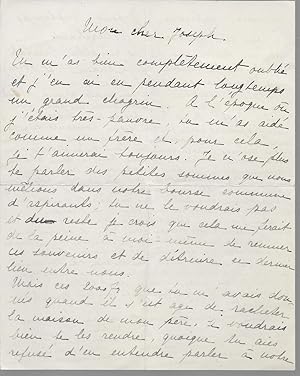 Mon cher Joseph.
Tu m'as bien complètement oublié
et j'en ai eu pendant longtemps
un grand chagrin. A l'époque où
j'étais très-pauvre, tu m'as aidé
comme un frère et, pour cela,
je t'aimerai toujours. Je n'ose plus
te parler des petites sommes que nous
mettions dans notre bourse commune
d'aspirants: tu ne le voudrais pas
et du reste je crois que cela me ferait
de la peine à moi-même de remuer
ces souvenirs et de détruire ce dernier
lien entre nous.
Mais ces que tu m'avais don
nés quand il s'est agi de racheter
la maison de mon père, je voudrais
bien te les rendre, quoique tu aies
refusé d'en entendre parler à notre